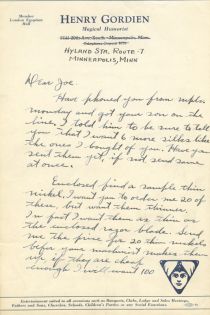 Member
London Egyptian
Hall
HENRY GORDIEN
Magical Humorist
Minneapolis, Minn.
HYLAND STA. ROUTE - 7
MINNEAPOLIS, MINN
Dear Joe
Have phoned you from mpls.
monday and got your son on the
line, I told him to be sure to tell
you that I want 6 more silks like
the ones I bought of you. Have you
sent them yet, if not send same
at once.
Enclosed find a sample thin
nickel, I want you to order me 20 of
these, but want them thinner.
In fact I want them as thin as
the enclosed razor blade. Send
me the price for 20 thin nickels
before your machinist makes them
up, if they are cheap
enough I will want 100
Entertainment suited to all occasions such as Banquets, Clubs, Lodge and Sales Meetings,
Fathers and Sons, Churches, Schools, Children's Parties or any Social Functions.